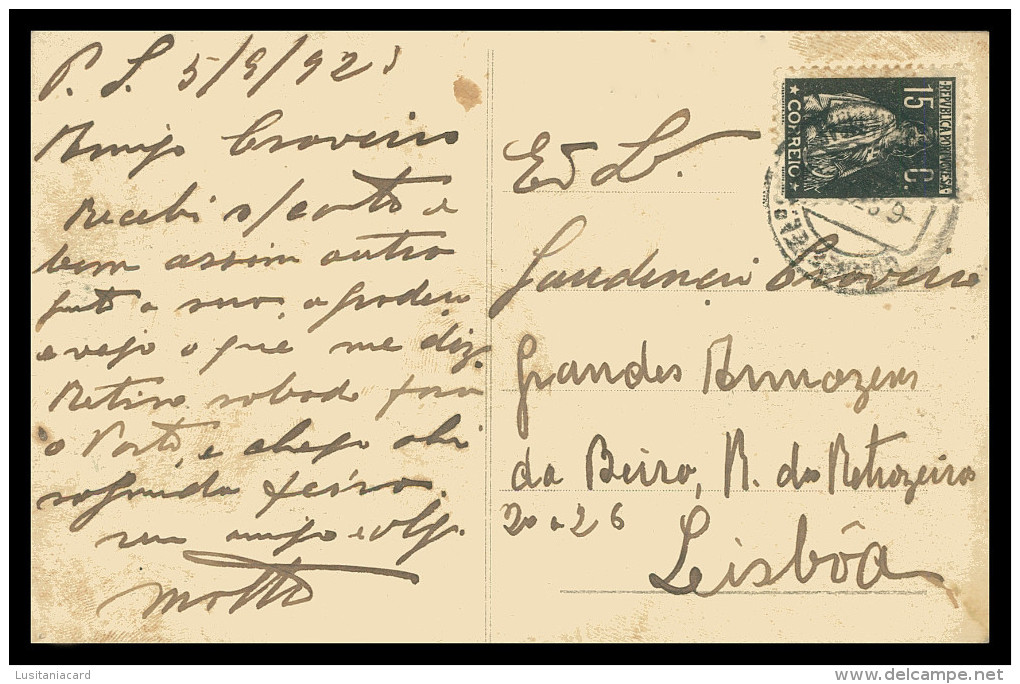 P. S. 5/9/923
Amigo Craveiro
Recebi s/ carta e
bem assim outra
junto a sua, a poder
e vejo o que me diz.
Retiro sabado para
o Porto, e chego ahi
segunda feira.
seu amigo e colg.
Motta
Ex. Sr.
Gaudencio Craveiro
Grandes Armazens
da Beira, R. dos Retrozeiros
20 a 26
Lisbôa
REPUBLICA PORTUGUESA
15 C.
CORREIO
Lusitaniacard
www.delcampe.net